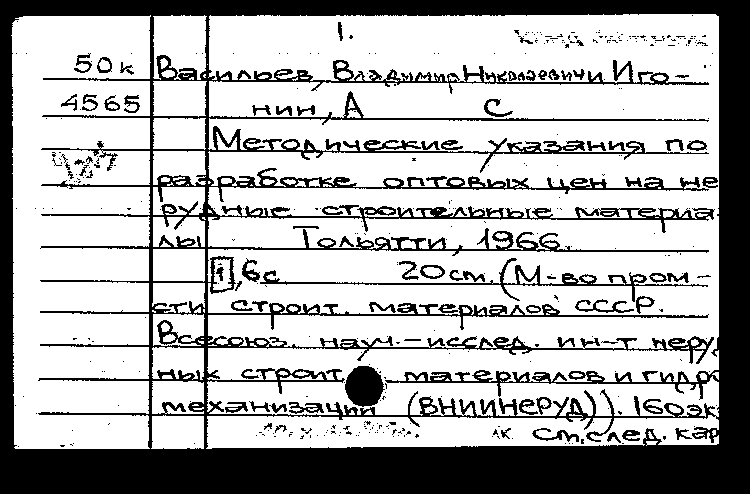 1.
50к Васильев, Владимир Николаевич и Иго-
4565 нин, А С
Методические указания по
разработке оптовых цен на не
рудные строительные материа
лы Тольятти, 1966.
[1], 6с 20см. (М-во пром-
сти строит. материалов СССР.
Всесоюз. науч.-исслед. ин-т неруд
ных строит. материалов и гидро
механизации (ВНИИНЕРУД)). 160экз
см.след. кар